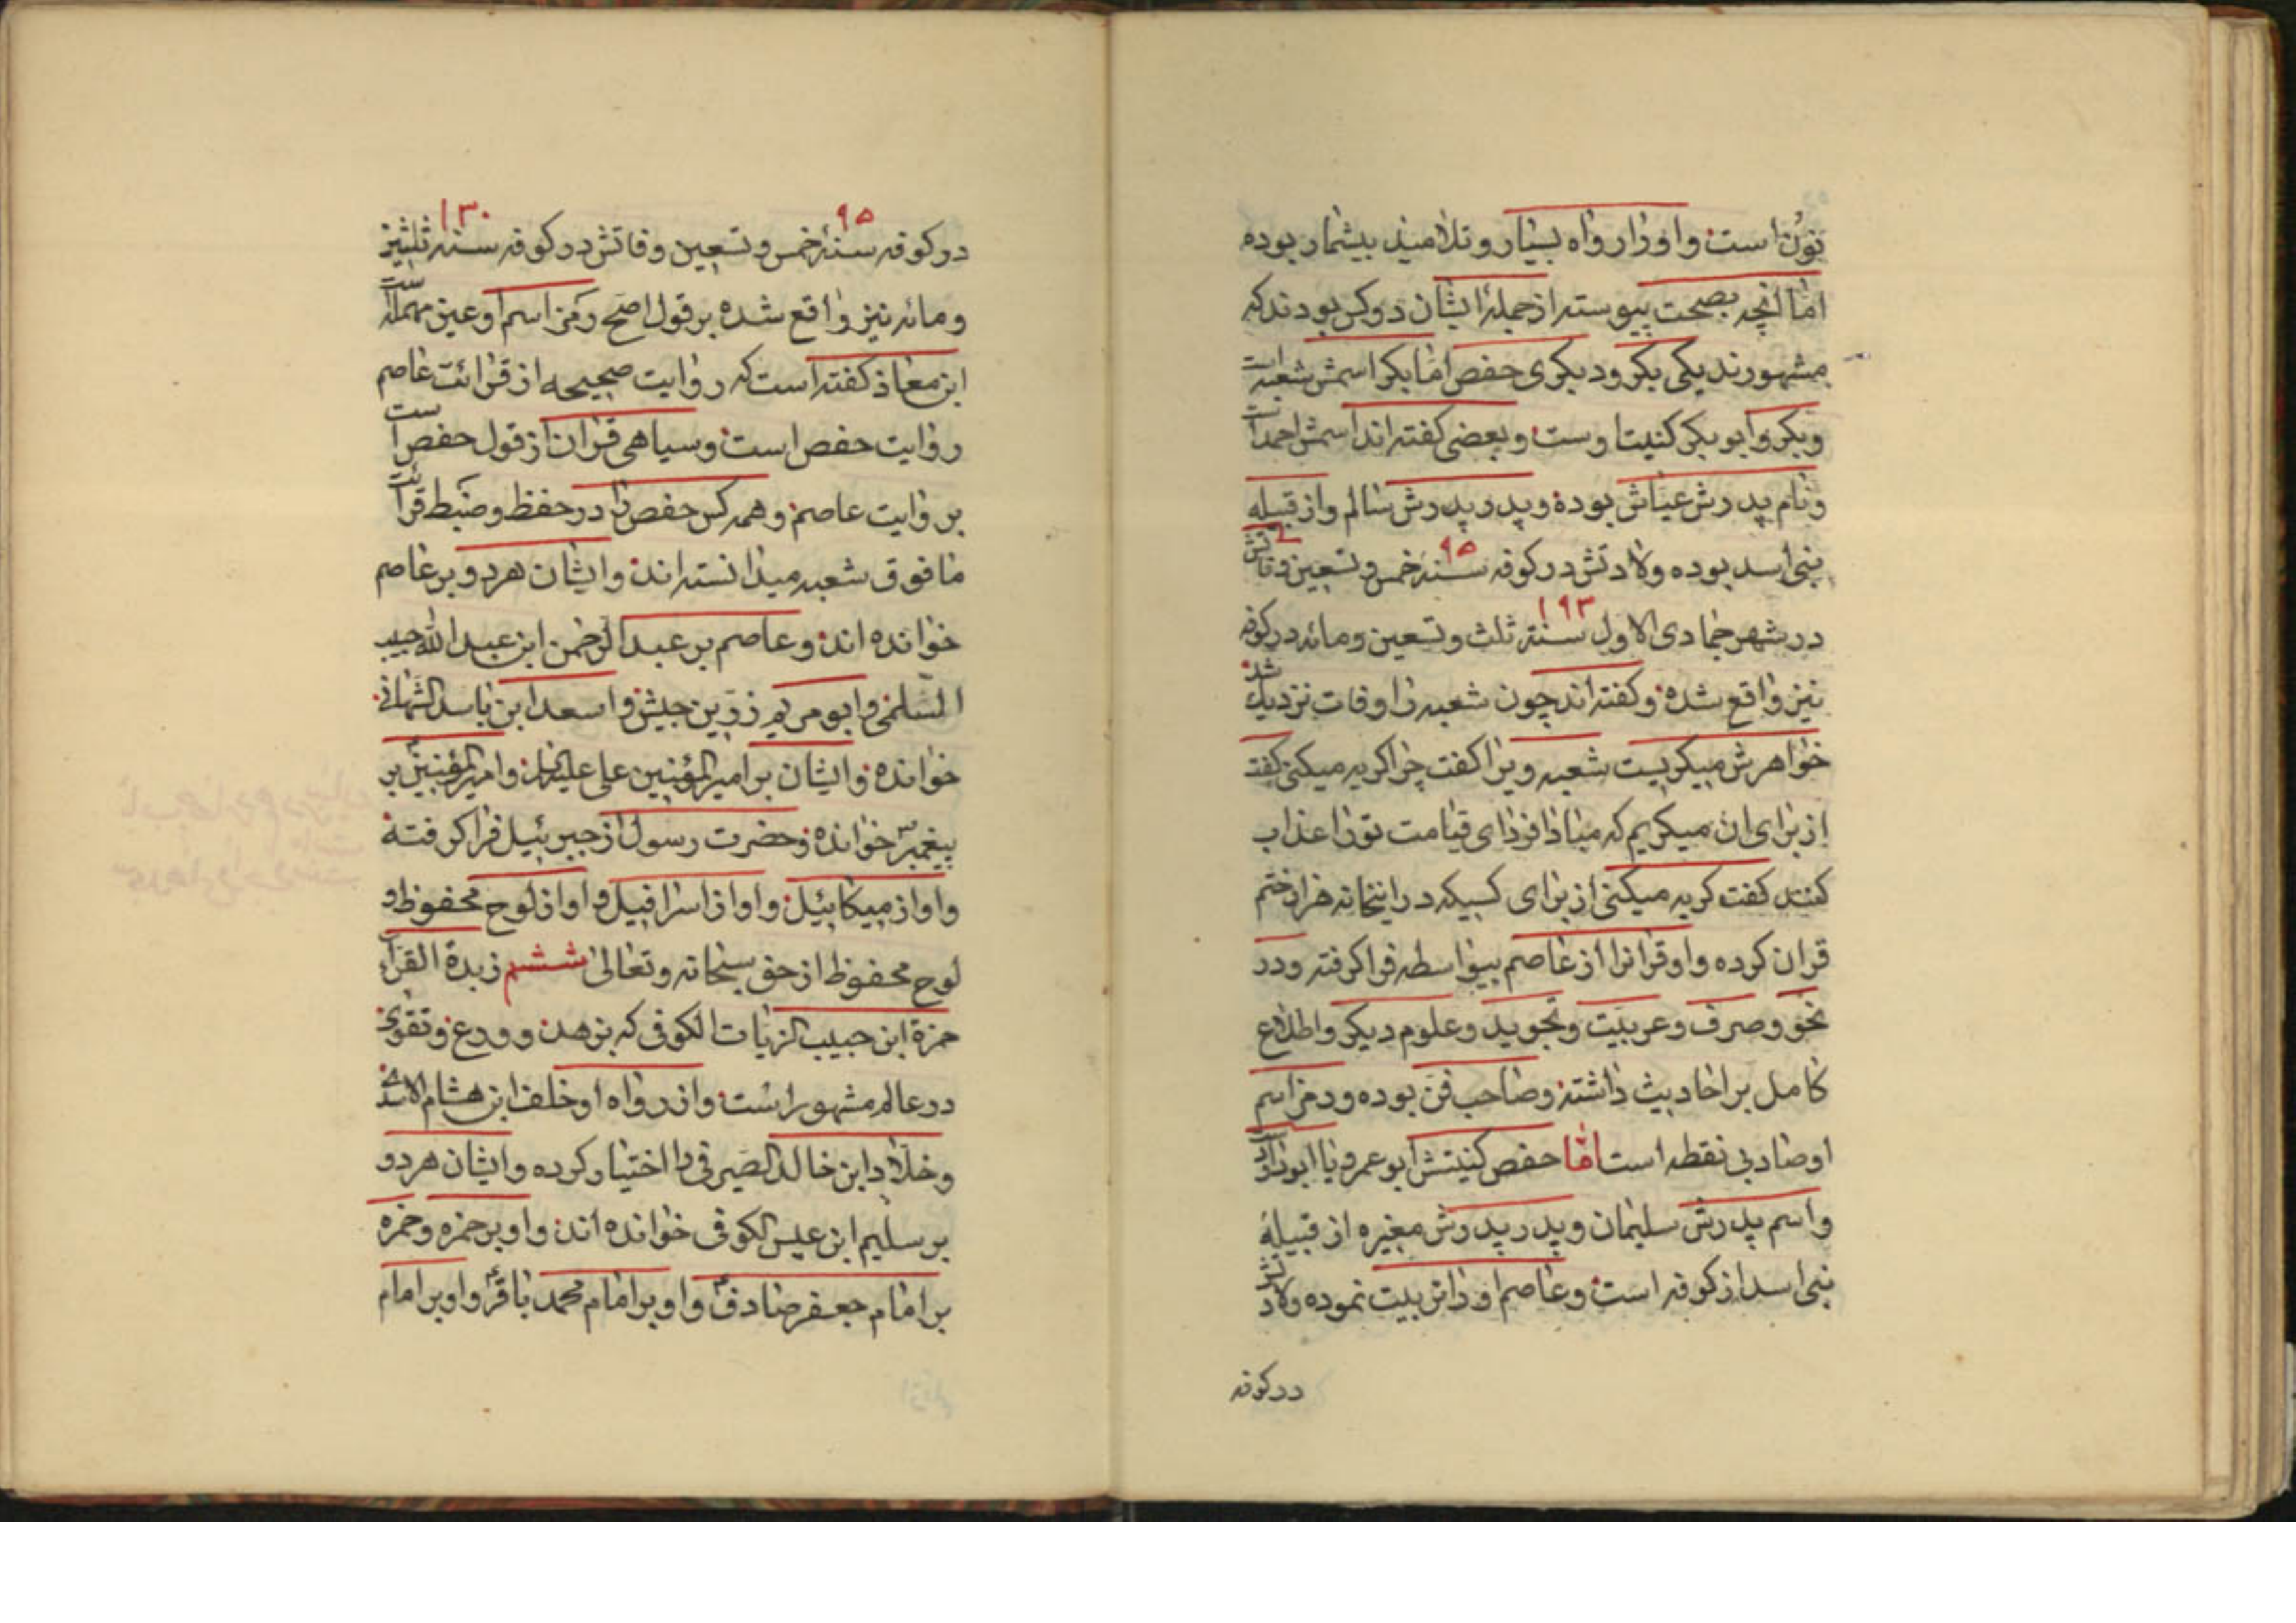 نون است و او را رواه بسیار و تلامیذ بیشمار بوده
اما آنچه بصحت پیوسته از جملهٔ ایشان دو کس بودند که
مشهورند یکی بکر و دیگری حفص اما بکر اسمش شعبه است
و بکر و ابو بکر کنیت اوست و بعضی گفته اند اسمش احمد است
و نام پدرش عیاش بوده و پدر پدرش سالم و از قبیله
بنی اسد بوده ولادتش در کوفه سنهٔ خمس و تسعین ۹۵ وفاتش
در شهر جمادی الاول سنهٔ ثلث و تسعین و مائه ۱۹۳ در کوفه
نیز واقع شده و گفته اند چون شعبه را وفات نزدیک شد
خواهرش میگریست شعبه ویرا گفت چرا گریه میکنی گفت
از برای ان میگریم که مبادا فردای قیامت تو را عذاب
کنند گفت گریه میکنی از برای کسیکه در اینخانه هزار ختم
قران کرده و او قرانرا از عاصم بیواسطه فرا گرفته و در
نحو و صرف و عربیت و تجوید و علوم دیگر و اطلاع
کامل بر احادیث داشته و صاحب فن بوده و رمز اسم
او صاد بی نقطه است اما حفص کنیتش ابو عمرو یا ابو داود است
و اسم پدرش سلیمان و پدر پدرش مغیره از قبیلهٔ
بنی اسد از کوفه است و عاصم او را تربیت نموده ولادتش
در کوفه
در کوفه سنهٔ خمس و تسعین ۹۵ وفاتش در کوفه سنه ثلثین ۱۳۰
و مائه نیز واقع شده بر قول اصح رمز اسم او عین مهمله است
ابن معاذ گفته است که روایت صحیحه از قرائت عاصم
روایت حفص است و سیاهی قران از قول حفص است
بروایت عاصم و همه کس حفص را در حفظ و ضبط قرائت
ما فوق شعبه میدانسته اند و ایشان هر دو بر عاصم
خوانده اند و عاصم بر عبد الرحمن ابن عبد الله حبیب
السلمی و ابو مریم زر بن حبیش و اسعد ابن یاسد الشهبانی
خوانده و ایشان بر امیر المؤمنین علی علیه السلام و امیر المؤمنین ع بر
پیغمبر ص خوانده و حضرت رسول از جبرئیل فرا گرفته
و او از میکائیل و او از اسرافیل و او از لوح محفوظ و
لوح محفوظ از حق سبحانه و تعالی ششم زبدة القراء
حمزة ابن حبیب الزیات الکوفی که بزهد و ورع و تقوی
در عالم مشهور است و از رواه او خلف ابن هشام الاسدی
و خلاد ابن خالد الصیرفی را اختیار کرده و ایشان هر دو
بر سلیم ابن عیسی الکوفی خوانده اند و او بر حمزه و حمزه
بر امام جعفر صادق ع و او بر امام محمد باقر ع و او بر امام